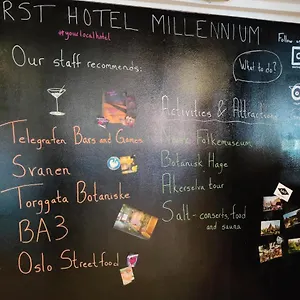 RST HOTEL MILLENNIUM
#yourlocalhotel
Follow
Our staff recommends:
What to do?
Activities & Attractions
Telegrafen Bars and Games
Folkemuseum
Svanen
Botanisk Hage
Torggata Botaniske
Akerselva tour
BA3
Salt - conserts, food
and sauna
Oslo Streetfood